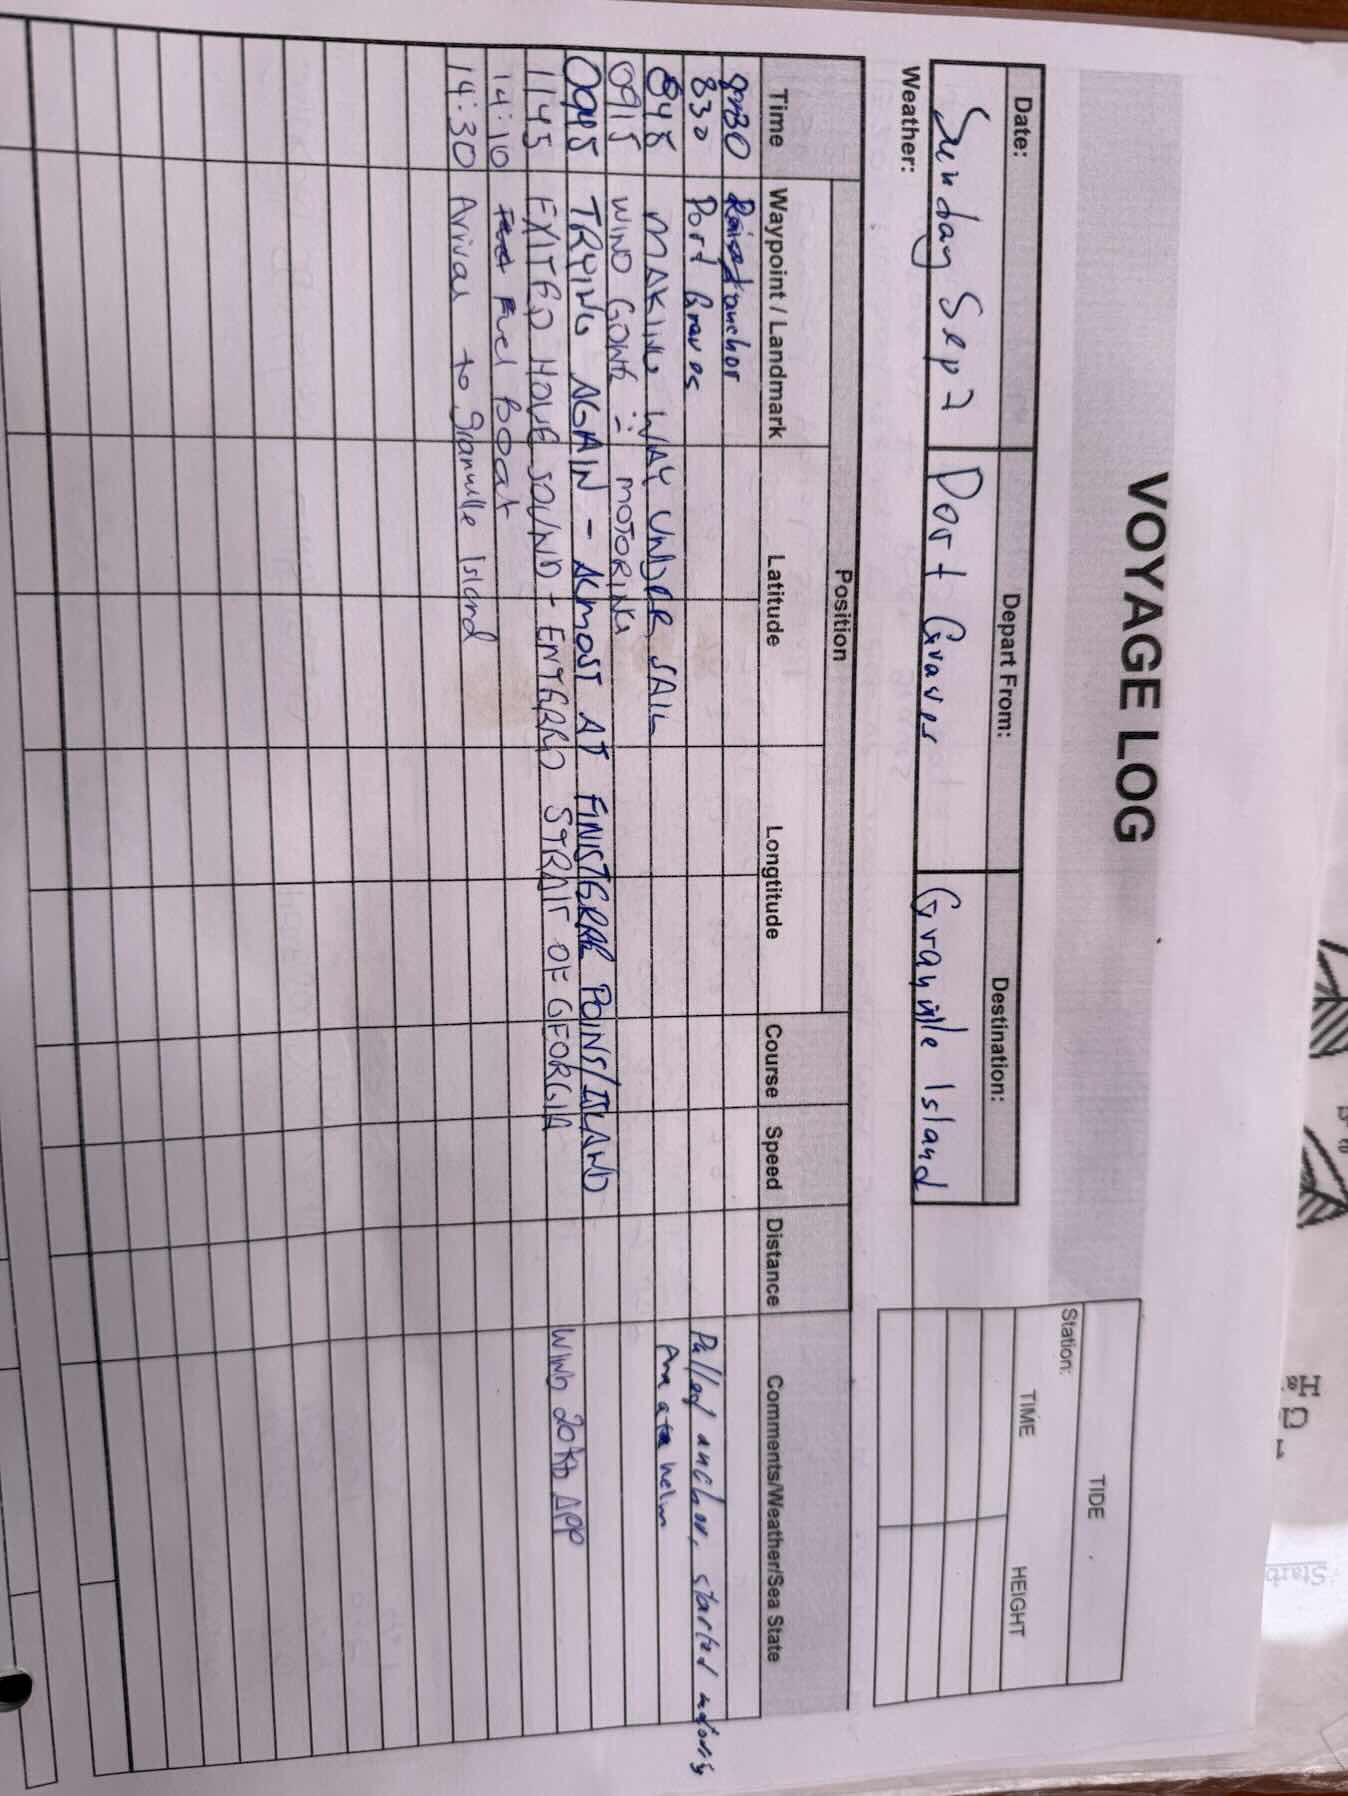 VOYAGE LOG
Date: Depart From: Destination:
Sunday Sep 7 Port Graves Granville Island
Weather:
TIDE
Station:
TIME HEIGHT
Position
Time Waypoint / Landmark Latitude Longtitude Course Speed Distance Comments/Weather/Sea State
anchor
830 Port Graves Pulled anchor, started
0845 MAKING WAY UNDER SAIL helm
0915 WIND GONE ∴ MOTORING
0945 TRYING AGAIN - ALMOST AT FINISTERRE POINT/ISLAND
1145 EXITED HOWE SOUND - ENTERED STRAIT OF GEORGIA WIND 20 APP
14:10 Fuel Boat
14:30 Arrival to Granville Island